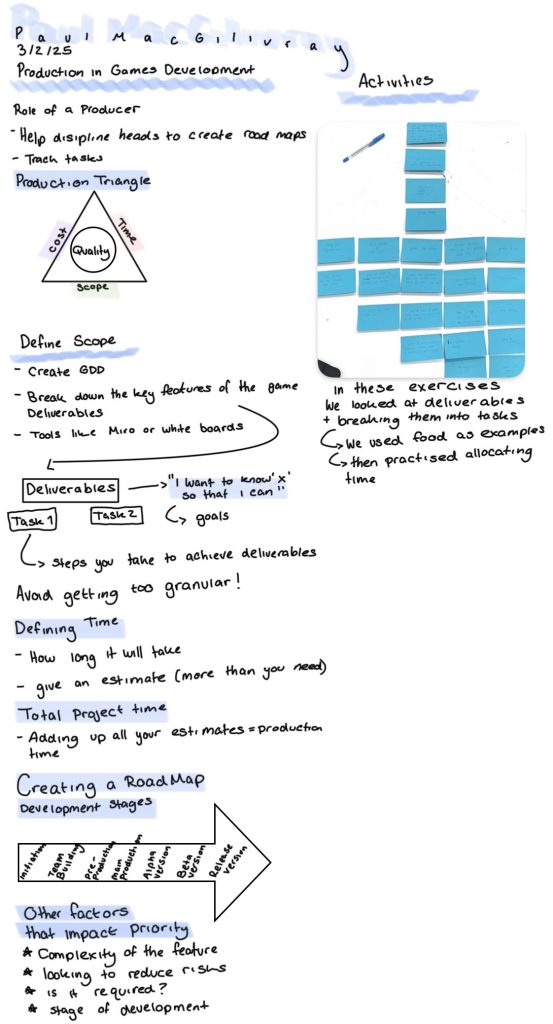 Paul MacGilivray
3/2/25
Production in Games Development
Role of a Producer
- Help disipline heads to create road maps
- Track tasks
Production Triangle
Cost
Time
Quality
Scope
Define Scope
- Create GDD
- Break down the key features of the game
Deliverables
- Tools like Miro or white boards
Deliverables
"I want to know 'x'
so that i can"
Task 1
Task 2
goals
steps you take to achieve deliverables
Avoid getting too granular!
Defining Time
- How long it will take
- give an estimate (more than you need)
Total project time
- Adding up all your estimates = production
time
Creating a RoadMap
Development stages
initiation
Team
Building
pre-
production
main
production
Alpha
version
Beta
version
Release
version
Other factors
that impact priority
* Complexity of the feature
* looking to reduce risks
* is it required?
* stage of development
Activities
in these exercises
We looked at deliverables
+ breaking them into tasks
We used food as examples
then practised allocating
time